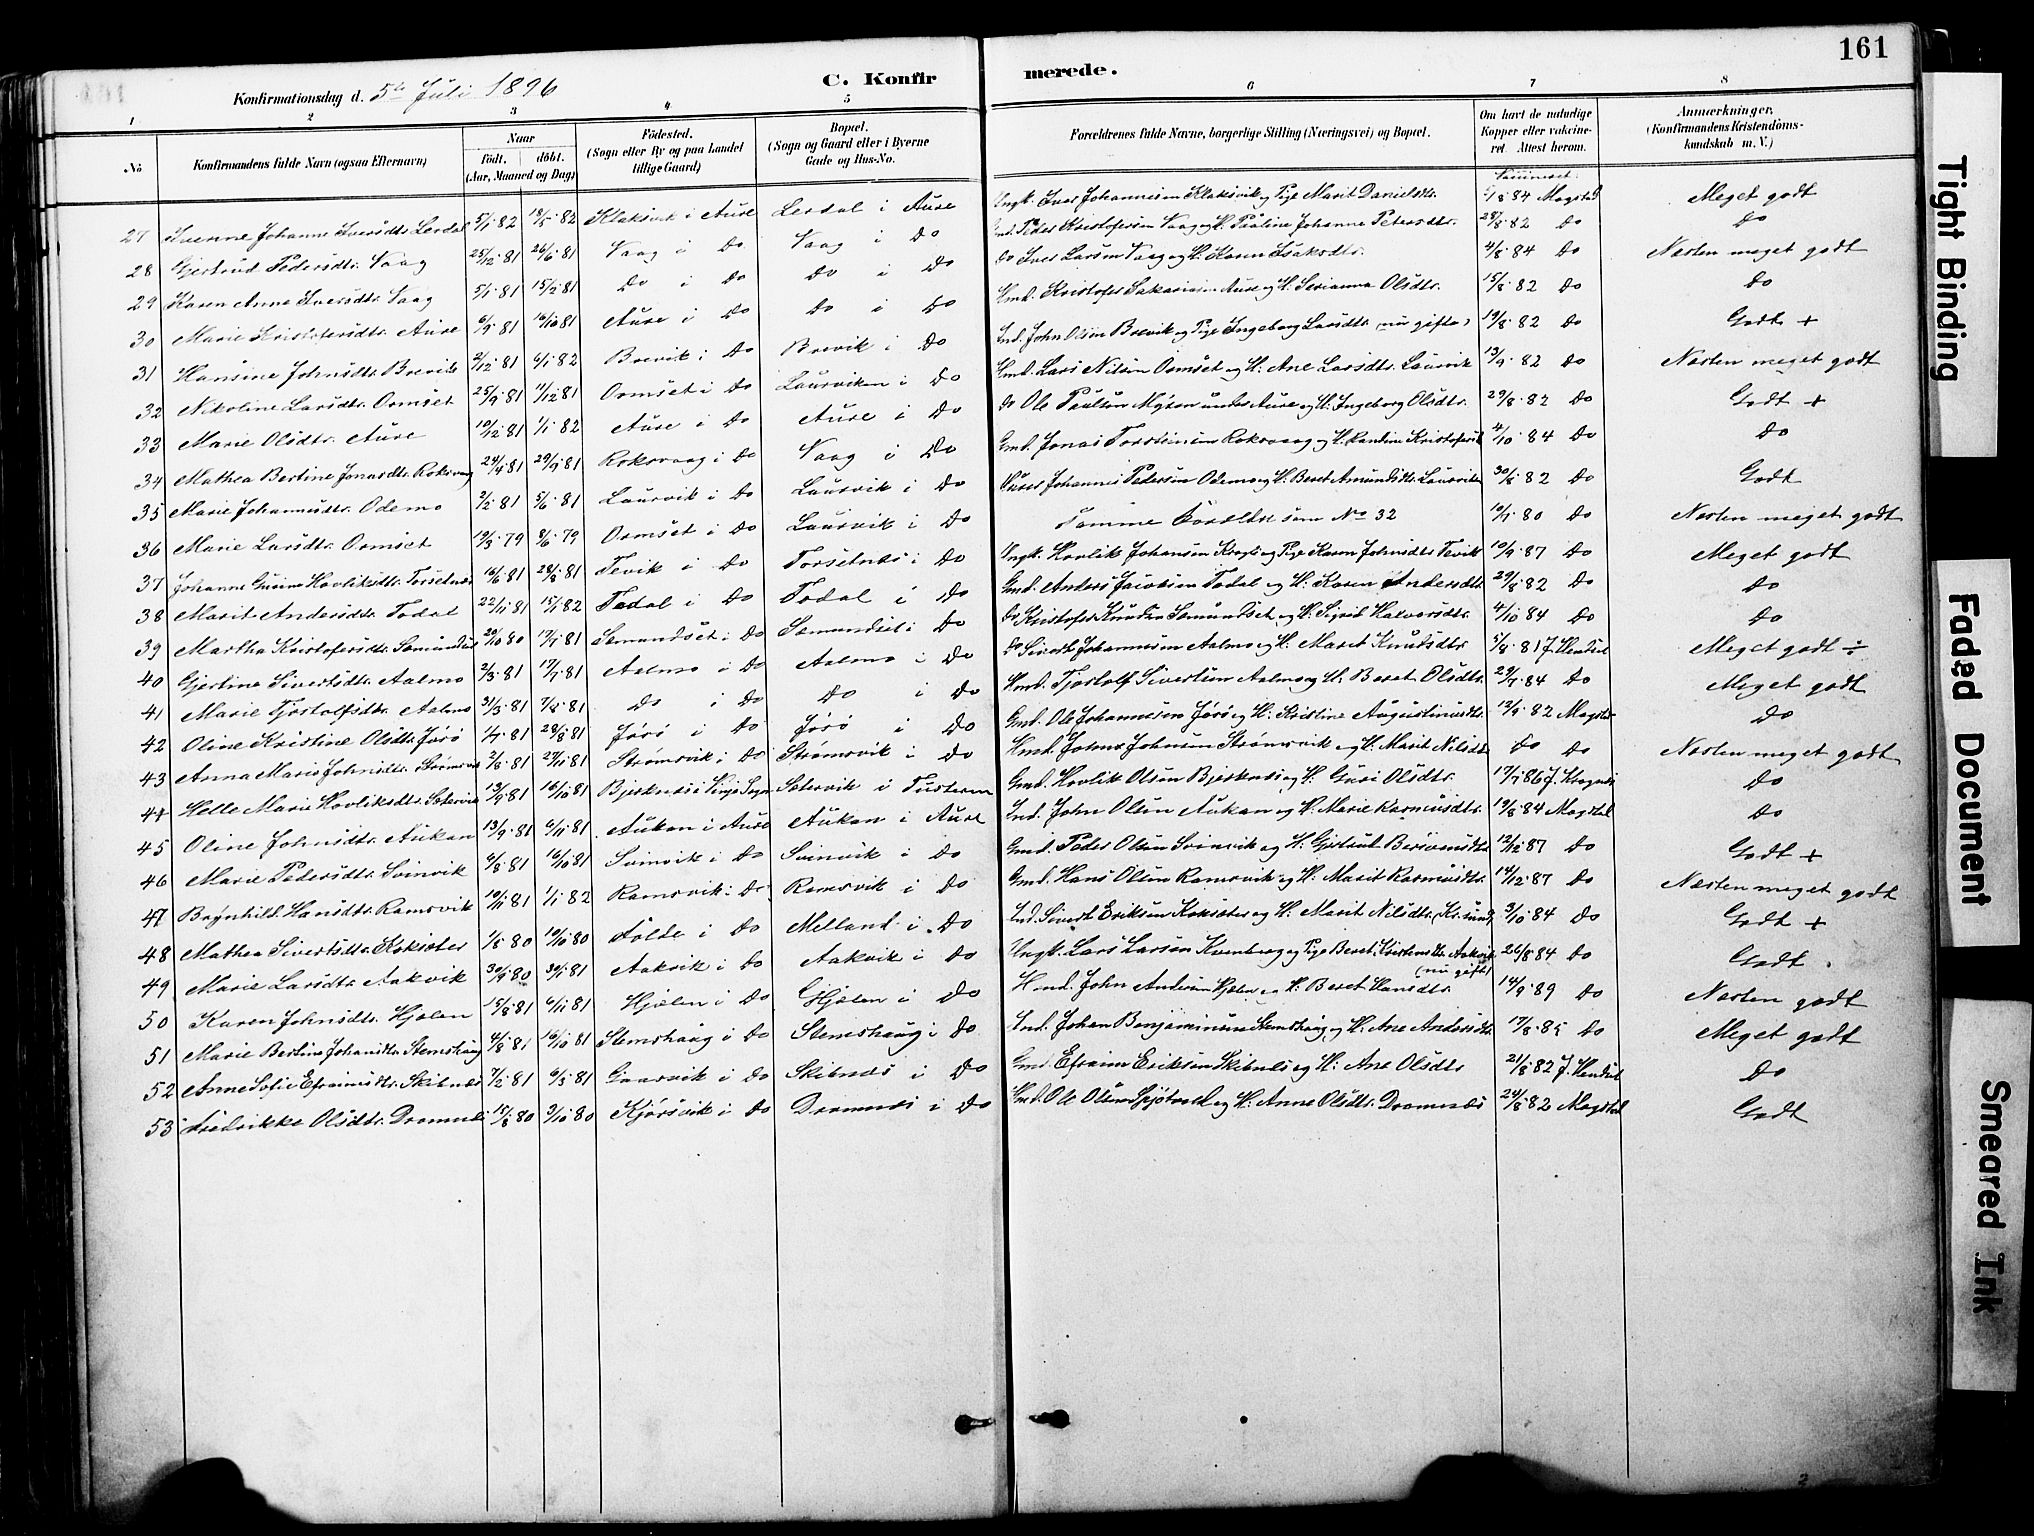 161
Konfirmationsdag d. 5te Juli 1896
C. Konfirmerede.
1 2 3 4 5 6 7 8
No Konfirmandens fulde Navn (ogsaa Efternavn) Naar födt. döbt. (Aar, Maaned og Dag) Födested. (Sogn eller By og paa Landet tillige Gaard) Bopæl. (Sogn og Gaard eller i Byerne Gade og Hus-No. Forældrenes fulde Navne, borgerlige Stilling (Næringsvei) og Bopæl. Om havt de naturlige Kopper eller vakcineret. Attest herom. Anmærkninger. (Konfirmandens Kristendomskundskab m. V.)
27 Johanne Iversdtr. Lerdal 5/1 82 Klaksvik i Aure Lerdal i Aure Ungk. Iver Johannesen Klaksvik og Pige Marit Danielsdtr. 84 Magstad Meget godt
28 Gjertrud Pedersdtr. Vaag 25/12 81 26/6 81 Vaag i do Vaag i do Peder Kristofersen Vaag og H. Pauline Johanne Petersdtr. 28/8 82 do do
29 Karen Anne Iversdtr. Vaag 5/1 81 15/2 81 do i do do i do do Iver Larsen Vaag og H. Karen Isaksdtr. 4/8 84 do Næsten meget godt
30 Marie Kristofersdtr. Aure 6/9 81 16/10 81 Aure i do do i do Hmd. Kristofer Sakariasen Aure og H. Serianna Olsdtr. 15/8 82 do do
31 Hansine Johnsdtr. Brevik 2/12 81 6/1 82 Brevik i do Brevik i do Ind. John Olsen Brevik og Pige Ingeborg Larsdtr. (nu gifte) 19/8 82 do Godt +
32 Nikoline Larsdtr. Ormset 25/9 81 11/12 81 Ormset i do Laurviken i do Gmd. Lars Nilsen Ormset og H. Ane Larsdtr. Laurvik 13/9 82 do Næsten meget godt
33 Marie Olsdtr. Aure 10/12 81 1/1 82 Aure i do Aure i do do Ole Paulsen Myren under Aure og H. Ingeborg Olsdtr. 29/8 82 do Godt +
34 Mathea Bertine Jonasdtr. Roksvaag 24/4 81 29/9 81 Roksvaag i do Vaag i do Gmd. Jonas Torsteinsen Roksvaag og H. Randine 4/10 84 do do
35 Marie Johannesdtr. Odemo 2/2 81 5/6 81 Laurvik i do Laurvik i do Johannes Pedersen Odemo og H. Beret Amundsdtr. Laurviken 30/8 82 do Godt
36 Marie Larsdtr. Ormset 19/3 79 8/6 79 Ormset i do Laurvik i do Samme Forældre som No 32 10/9 80 do Næsten meget godt
37 Johanne Gurine Hovliksdtr. Torsetnes 16/6 81 28/8 81 Tevik i do Torsetnes i do Ungk. Hovlik Johansen og Pige Karen Johnsdtr. Tevik 10/9 87 do Meget godt
38 Marit Andersdtr. Todal 22/11 81 15/1 82 Todal i do Todal i do Gmd. Anders Jacobsen Todal og H. Karen Andersdtr. 29/8 82 do do
39 Martha Kristofersdtr. Semundset 29/10 80 17/4 81 Semundset i do Semundset i do do Kristofer Knudsen Semundset og H. Sigrid Halvorsdtr. 4/10 84 do do
40 Gjertine Sivertsdtr. Aalmo 2/3 81 17/7 81 Aalmo i do Aalmo i do do Sivert Johannesen Aalmo og H. Marit Knutsdtr. 5/4 81 J. Hendset Meget godt ÷
41 Marie Tjostolfsdtr. Aalmo 31/3 81 7/8 81 do i do do i do Hmd. Tjostolf Sivertsen Aalmo og H. Beret Olsdtr. 29/7 84 do Meget godt
42 Oline Kristine Olsdtr. Jørø 1/7 81 28/8 81 Jørø i do Jørø i do Gmd. Ole Johannesen Jørø og H. Kristine Augustinusdtr. 12/9 82 Magstad do
43 Anna Maria Johnsdtr. Strømsvik 2/8 81 27/11 81 Strømsvik i do Strømsvik i do Hmd. Johnsen Strømsvik og H. Marit Nilsdtr. do do Næsten meget godt
44 Helle Marie Hovliksdtr. Sætervik 13/9 81 16/10 81 Bjerknes i Vinje Sogn Sætervik i Tusteren Gmd. Hovlik Olsen Bjerknes og H. Guri Olsdtr. 17/7 86 J. do
45 Oline Johnsdtr. Aukan 13/9 81 6/11 81 Aukan i Aure Aukan i Aure Ind. John Olsen Aukan og H. Marie Rasmusdtr. 19/8 84 Magstad do
46 Marie Pedersdtr. Svinvik 6/8 81 16/10 81 Svinvik i do Svinvik i do Gmd. Peder Olsen Svinvik og H. Gjertrud 12/12 87 do Godt +
47 Brynhild Hansdtr. Ramsvik 10/11 81 1/1 82 Ramsvik i do Ramsvik i do Gmd. Hans Olsen Ramsvik og H. Marit Rasmusdtr. 14/12 87 do Næsten meget godt
48 Mathea Sivertsdtr. Koksæter 1/8 80 10/10 80 Folde i do Melland i do Ind. Sivert Eriksen Koksæter og H. Marit Nilsdtr. (Kr.sund) 3/10 84 do Godt +
49 Marie Larsdtr. Aakvik 30/9 80 30/1 81 Aakvik i do Aakvik i do Ungk. Lars Larsen Kvenberg og Pige Beret Kristensdtr. Aakvik (nu gift) 26/8 84 do Godt
50 Karen Johnsdtr. Hjelen 15/8 81 6/11 81 Hjelen i do Hjelen i do Hmd. John Andersen Hjelen og H. Beret Hansdtr. 14/9 89 do Næsten godt
51 Marie Bertine Johansdtr. Stemshaug 4/8 81 16/10 81 Stemshaug i do Stemshaug i do Ind. Johan Benjaminsen Stemshaug og H. Ane Andersdtr. 17/8 85 do Meget godt
52 Anne Sofie Efraimsdtr. Skibnes 7/2 81 6/3 81 Gaarvik i do Skibnes i do Gmd. Efraim Eriksen Skibnes og H. Ane Olsdtr. 21/8 82 J. Hendset do
53 Fredrikke Olsdtr. Dromnes 15/8 80 3/10 80 Kjørsvik i do Dromnes i do Hmd. Ole Olsen og H. Anne Olsdtr. Dromnes 24/8 82 Magstad Godt
Tight Binding
Faded Document
Smeared Ink